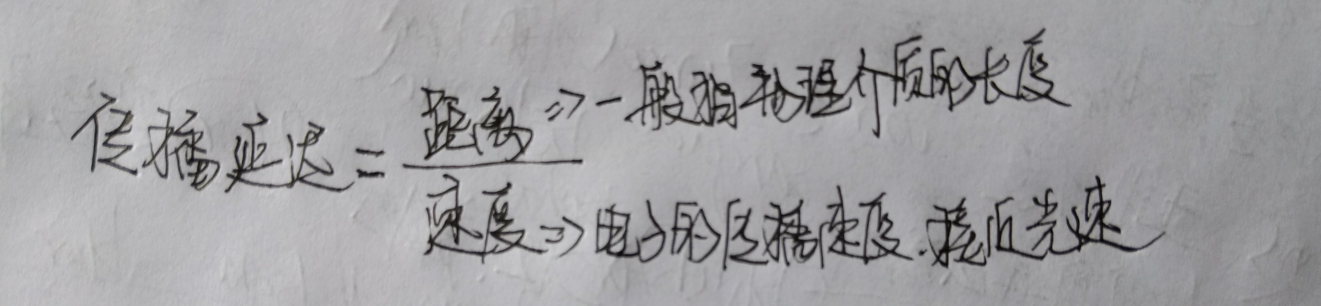 传播延迟=距离=>一般指物理介质的长度
速度=>电子的传播速度.接近光速